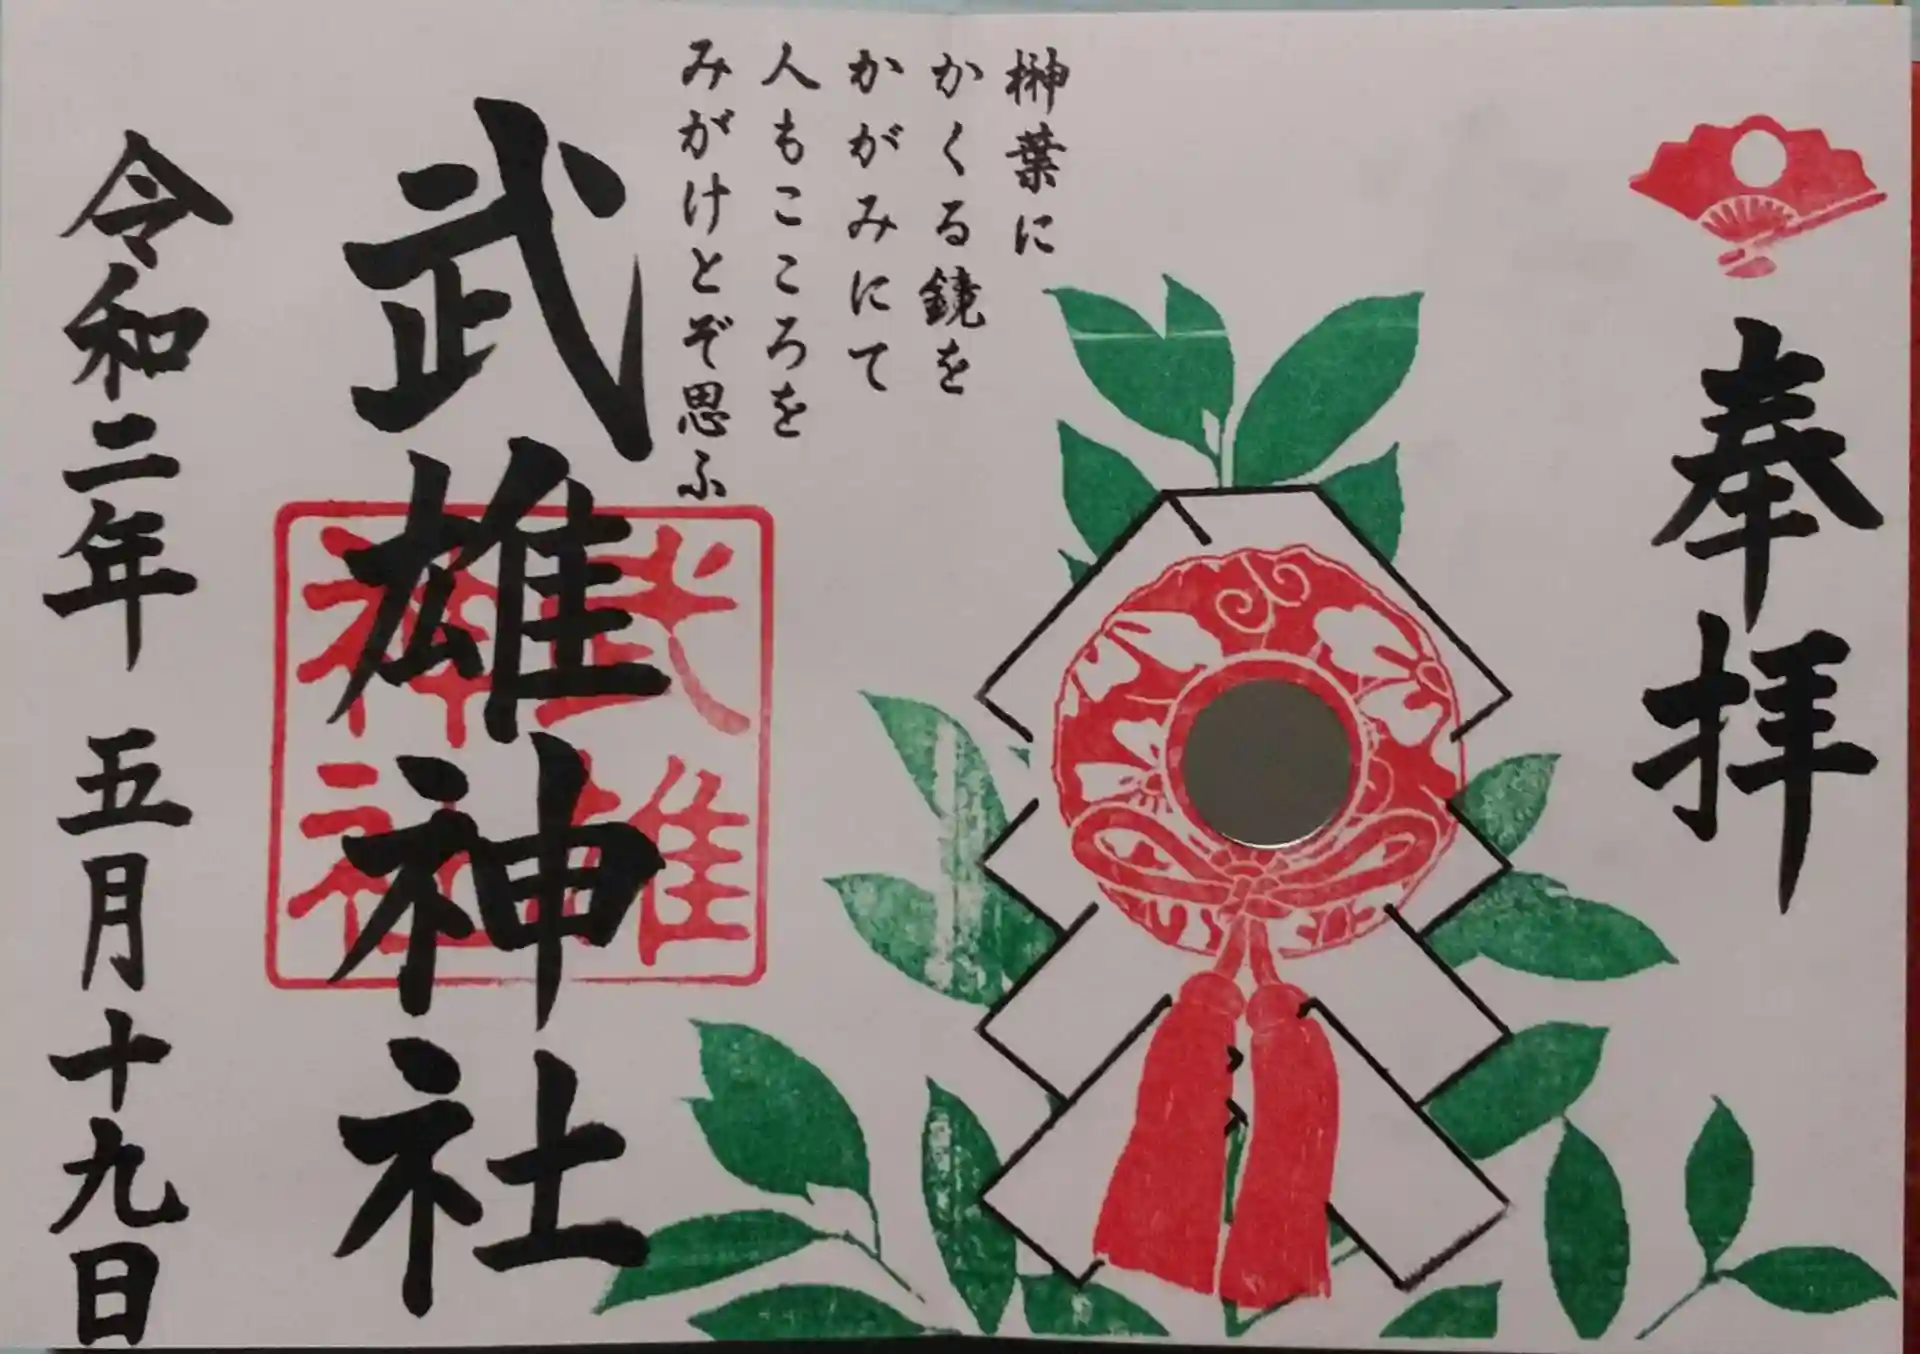 奉拝
榊葉に
かくる鏡を
かがみにて
人もこころを
みがけとぞ思ふ
武雄神社
武雄
神社
令和二年 五月十九日